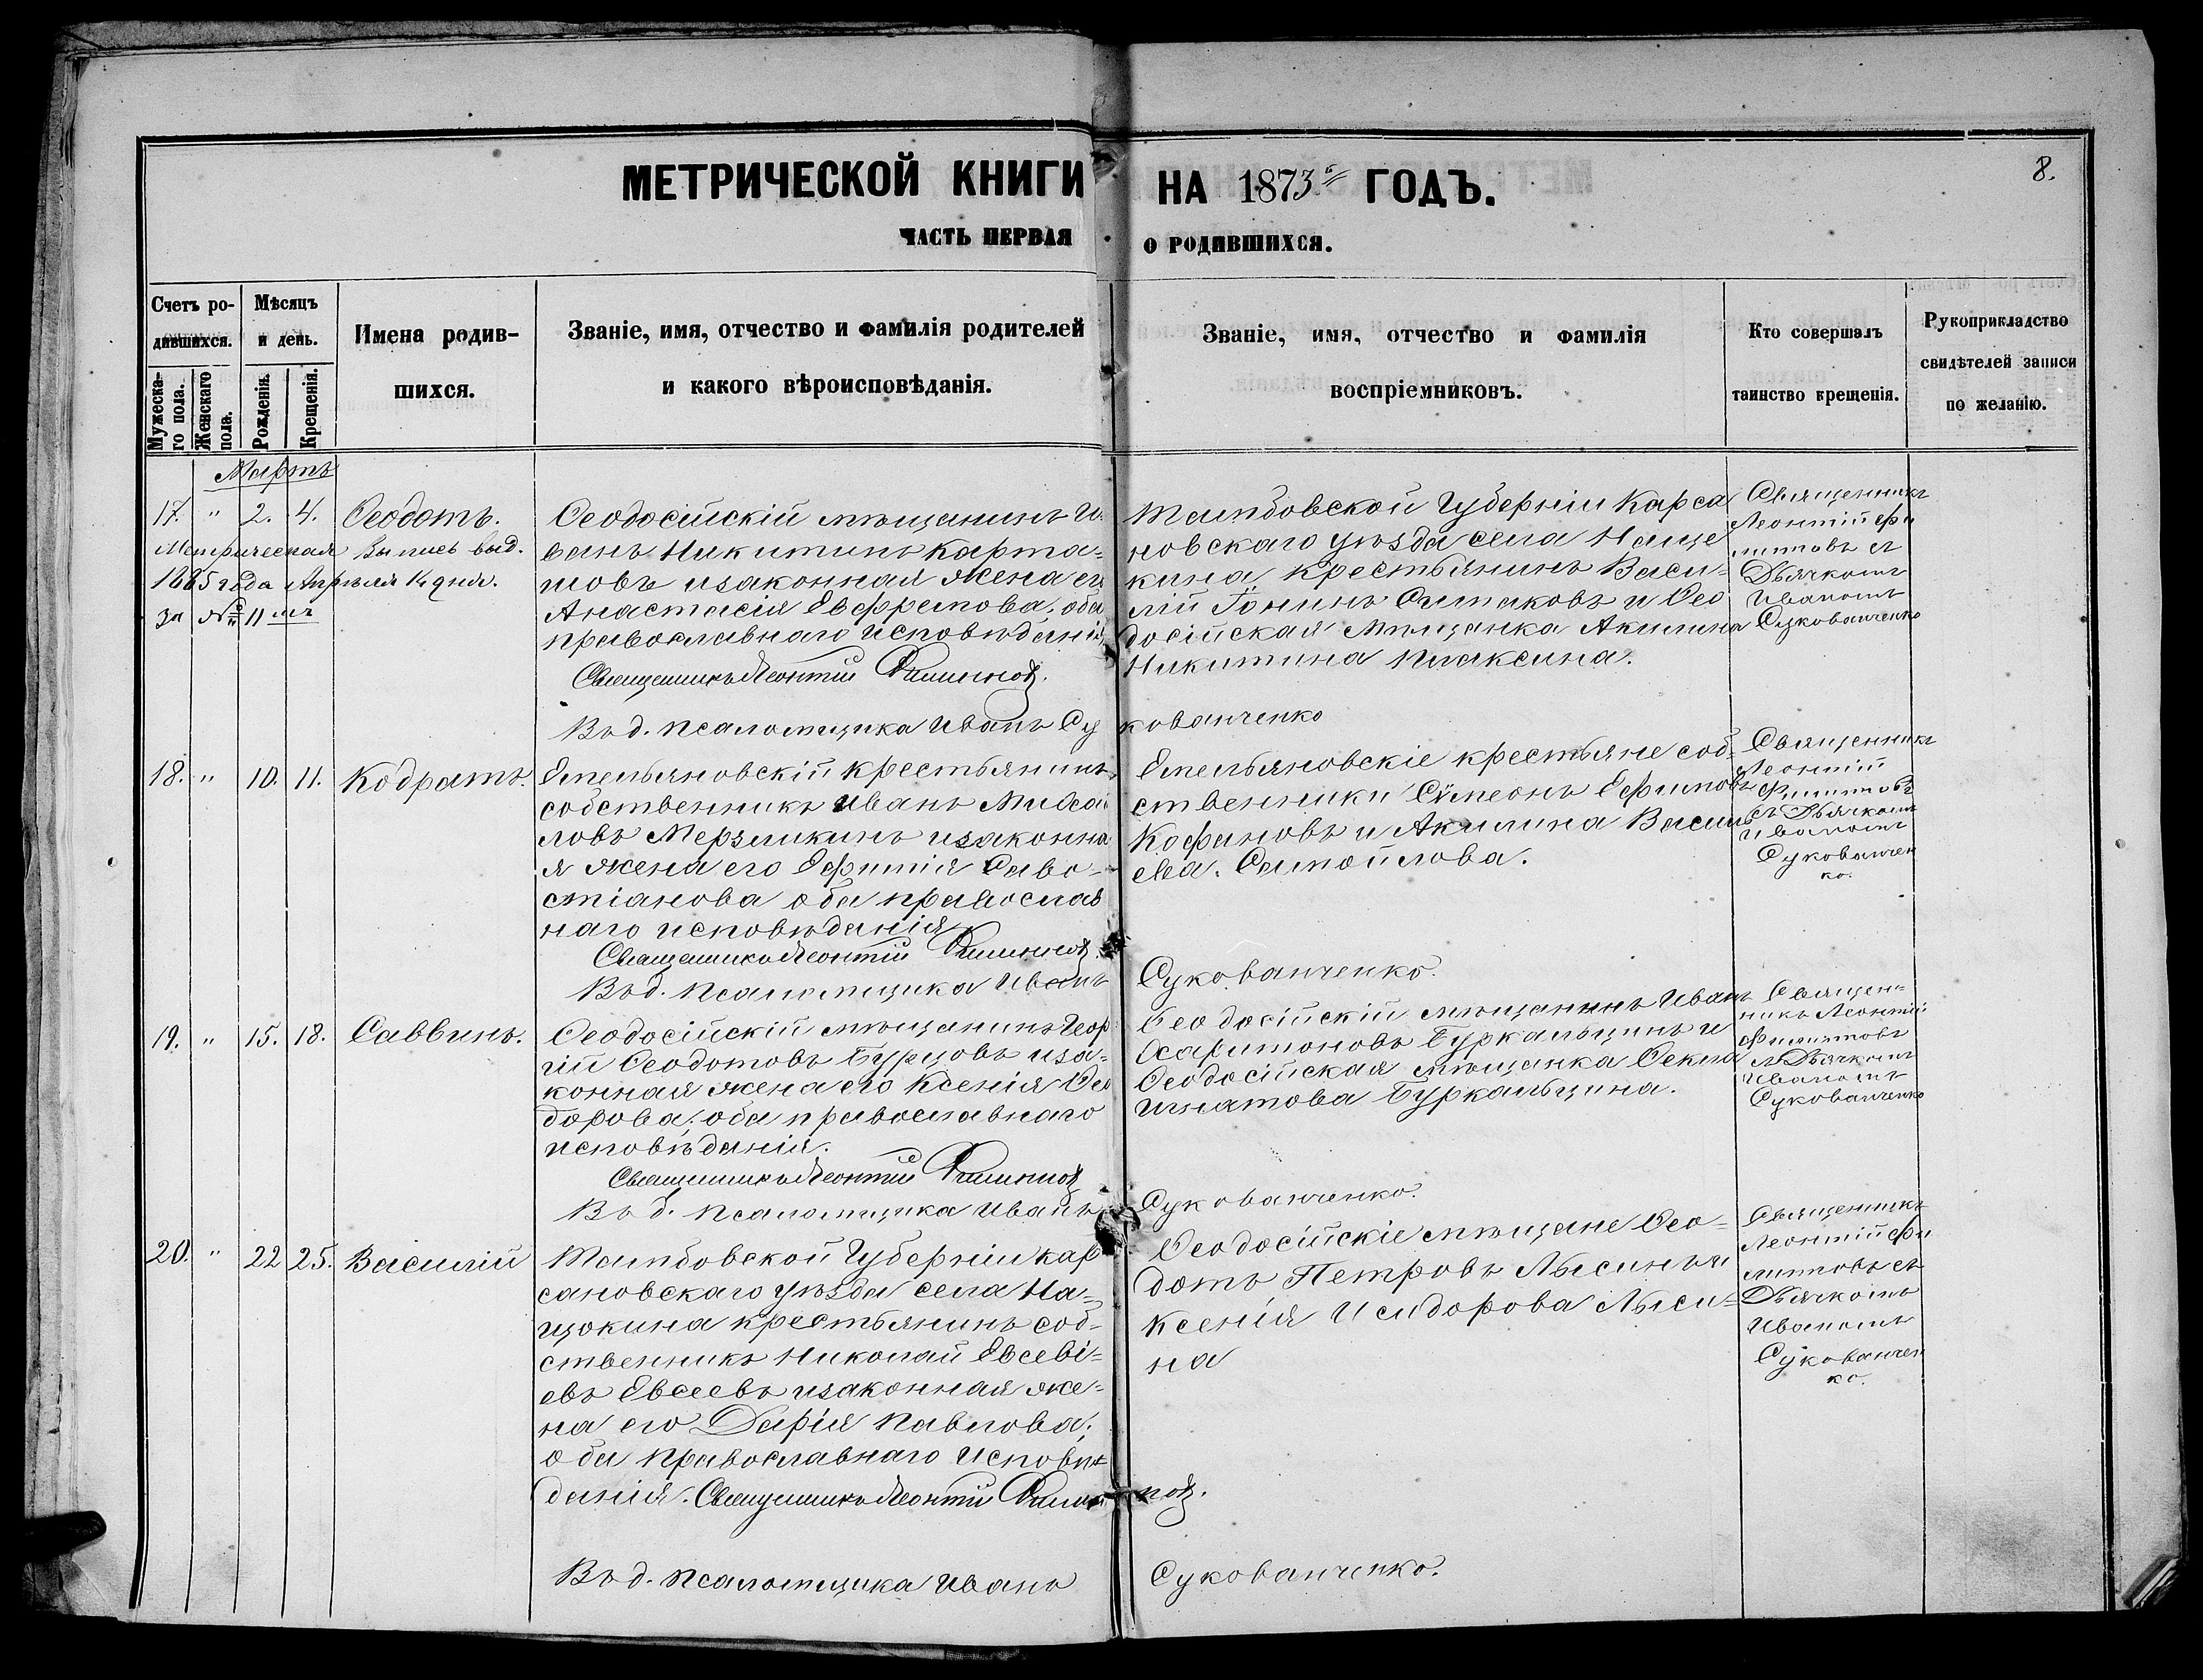 МЕТРИЧЕСКОЙ КНИГИ НА 1873й ГОДЪ.
8.
ЧАСТЬ ПЕРВАЯ О РОДИВШИХСЯ.
Счетъ ро-
дившихся.
Мужеска-
го пола.
Женскаго
пола.
Мѣсяцъ
и день.
Рожденія.
Крещенія.
Имена родив-
шихся.
Званіе, имя, отчество и фамилія родителей
и какого вѣроисповѣданія.
Званіе, имя, отчество и фамилія
воспріемниковъ.
Кто совершалъ
таинство крещенія.
Рукоприкладство
свидѣтелей записи
по желанію.
Мартъ
17. " 2. 4. Ѳеодотъ.
Метрическая Выпись выд.
года Апрѣля 14 дня.
за № 11 мъ
Ѳеодосійскій мѣщанинъ И-
ванъ Никитинъ Карта=
шовъ изаконная жена его
Анастасія Евфремова, оба
православнаго исповѣданія,
Священникъ Леонтій Филиповъ.
Въ д. псаломщика Иванъ Сукованченко
Тамбовской Губерніи Карса
новскаго уѣзда села Наще
кина крестьянинъ Васи-
лій Іонинъ Симаковъ и Ѳео
досійская Мѣщанка Акилина
Никитина Плаксина.
Священникъ
Леонтій Фи
липовъ съ
Дьячкомъ
Иваномъ
Сукованченко
18. " 10. 11. Кодратъ.
Емельяновскій крестьянинъ
собственникъ Иванъ Михаи
ловъ Мерзликинъ изаконна
я жена его Ефимія Саво-
стіанова оба православ
наго исповѣданія
Священникъ Леонтій Филиповъ.
Въ д. псаломщика Иванъ Сукованченко.
Емельяновскіе крестьяне соб-
ственники Сѵмеонъ Ефимовъ
Кофановъ и Акилина Василь
ева Самойлова.
Священникъ
Леонтій
Филиповъ
съ Дьячкомъ
Иваномъ
Сукованчен
ко.
19. " 15. 18. Саввинъ.
Ѳеодосійскій мѣщанинъ Геор
гій Ѳеодотовъ Бурцовъ иза-
конная жена его Ксенія Ѳео
дорова; оба православнаго
исповѣданія.
Священникъ Леонтій Филиповъ
Въ д. псаломщика Иванъ Сукованченко.
Ѳеодосійскій мѣщанинъ Иванъ
Харитоновъ Буркальцинъ и
Ѳеодосійская мѣщанка Ѳекла
Игнатова Буркальцина.
Священ-
никъ Леонтій
Филиповъ
съ Дьячкомъ
Иваномъ
Сукованченко
20. " 22 25. Василій
Тамбовской Губерніи Кар
сановскаго уѣзда села На-
щокина крестьянинъ соб-
ственникъ Николай Евсеві=
евъ Евсеевъ изаконная же-
на его Дарія Павлова;
оба православнаго исповѣ
данія. Священникъ Леонтій Филиповъ.
Въ д. псаломщика Иванъ Сукованченко.
Ѳеодосійскіе мѣщане Ѳео-
дотъ Петровъ Лысинъ и
Ксенія Исидорова Лыси-
на
Священникъ
Леонтій Фи
липовъ съ
Дьячкомъ
Иваномъ
Сукованчен
ко.